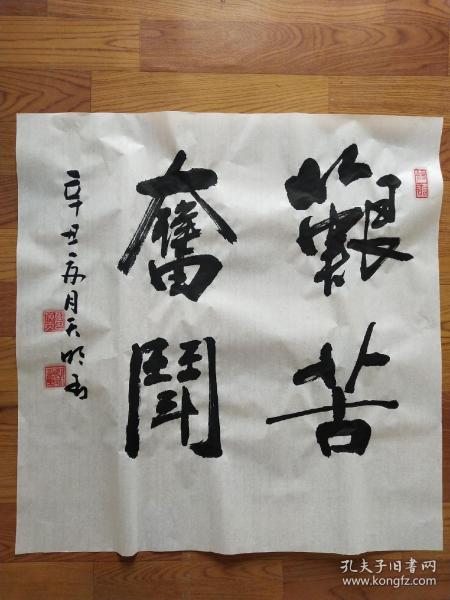 艱苦
奮鬪
辛丑年月天明书
孔夫子旧书网
www.kongfz.com